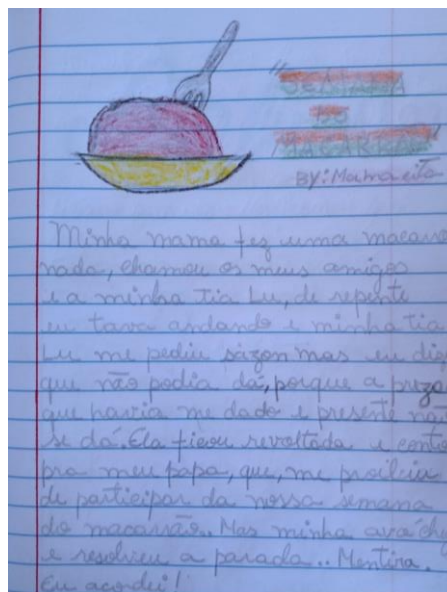 "SEMANA
DO
MACARRÃO"
BY: Mamacita
Minha mama fez uma macarro
nada, chamou os meus amigos
e a minha tia Lu, de repente
eu tava andando e minha tia
Lu me pediu sazon mas eu dis
que não podia dá, porque a preza
que havia me dado e presente não
se dá. Ela ficou revoltada e conto
pra meu papa, que, me proibiu
de participar da nossa semana
do macarrão.. Mas minha avó che
e resolveu a parada.. Mentira.
Eu acordei!